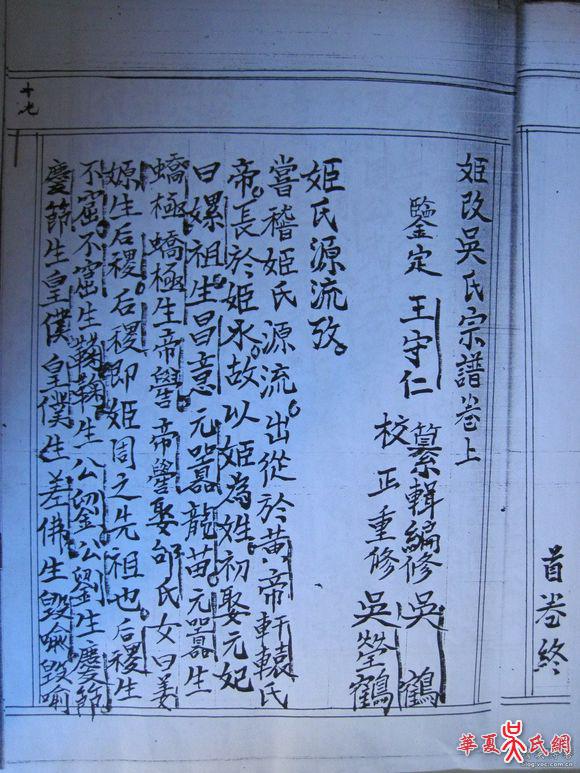 首卷終
姬改吳氏宗譜卷上
鑒定 王守仁 纂輯編修 吳鶴
校正重修 吳瑩鶴
姬氏源流攷
嘗稽姬氏源流出從於黃帝軒轅氏
帝長於姬水故以姬為姓初娶元妃
曰嫘祖生昌意元囂龍苗元囂生
蟜極蟜極生帝嚳帝嚳娶邰氏女曰姜
嫄生后稷后稷即姬周之先祖也后稷生
不窋不窋生鞠鞠生公劉公劉生慶節
慶節生皇僕皇僕生差佛生毀喻毀喻
十七
華夏吳氏網
blog.voc.com.cn